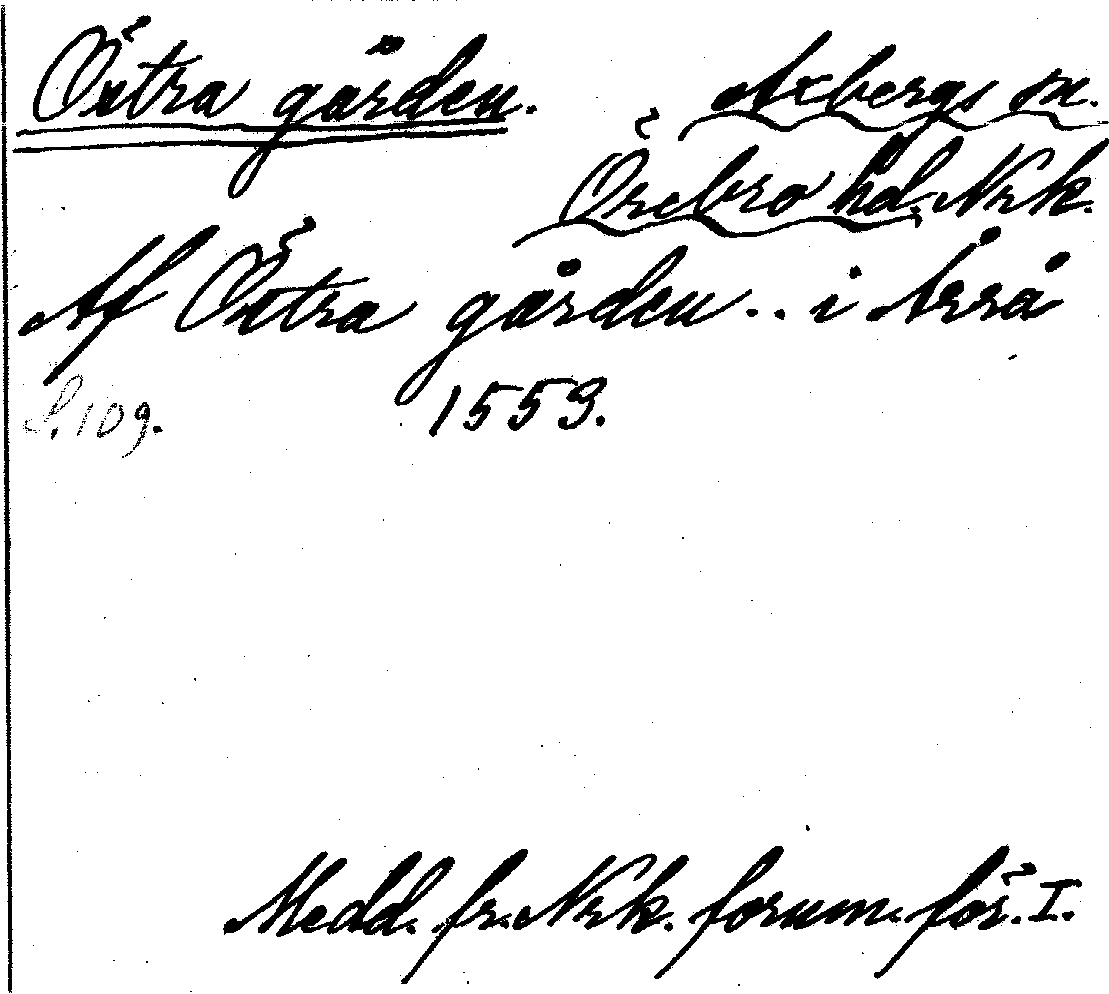 Östra gården. Axbergs sn.
Örebro hd. Nrk.
Af Östra gården .. i Årrå
S. 109. 1559.
Medd. fr. Nrk. fornm. för. I.